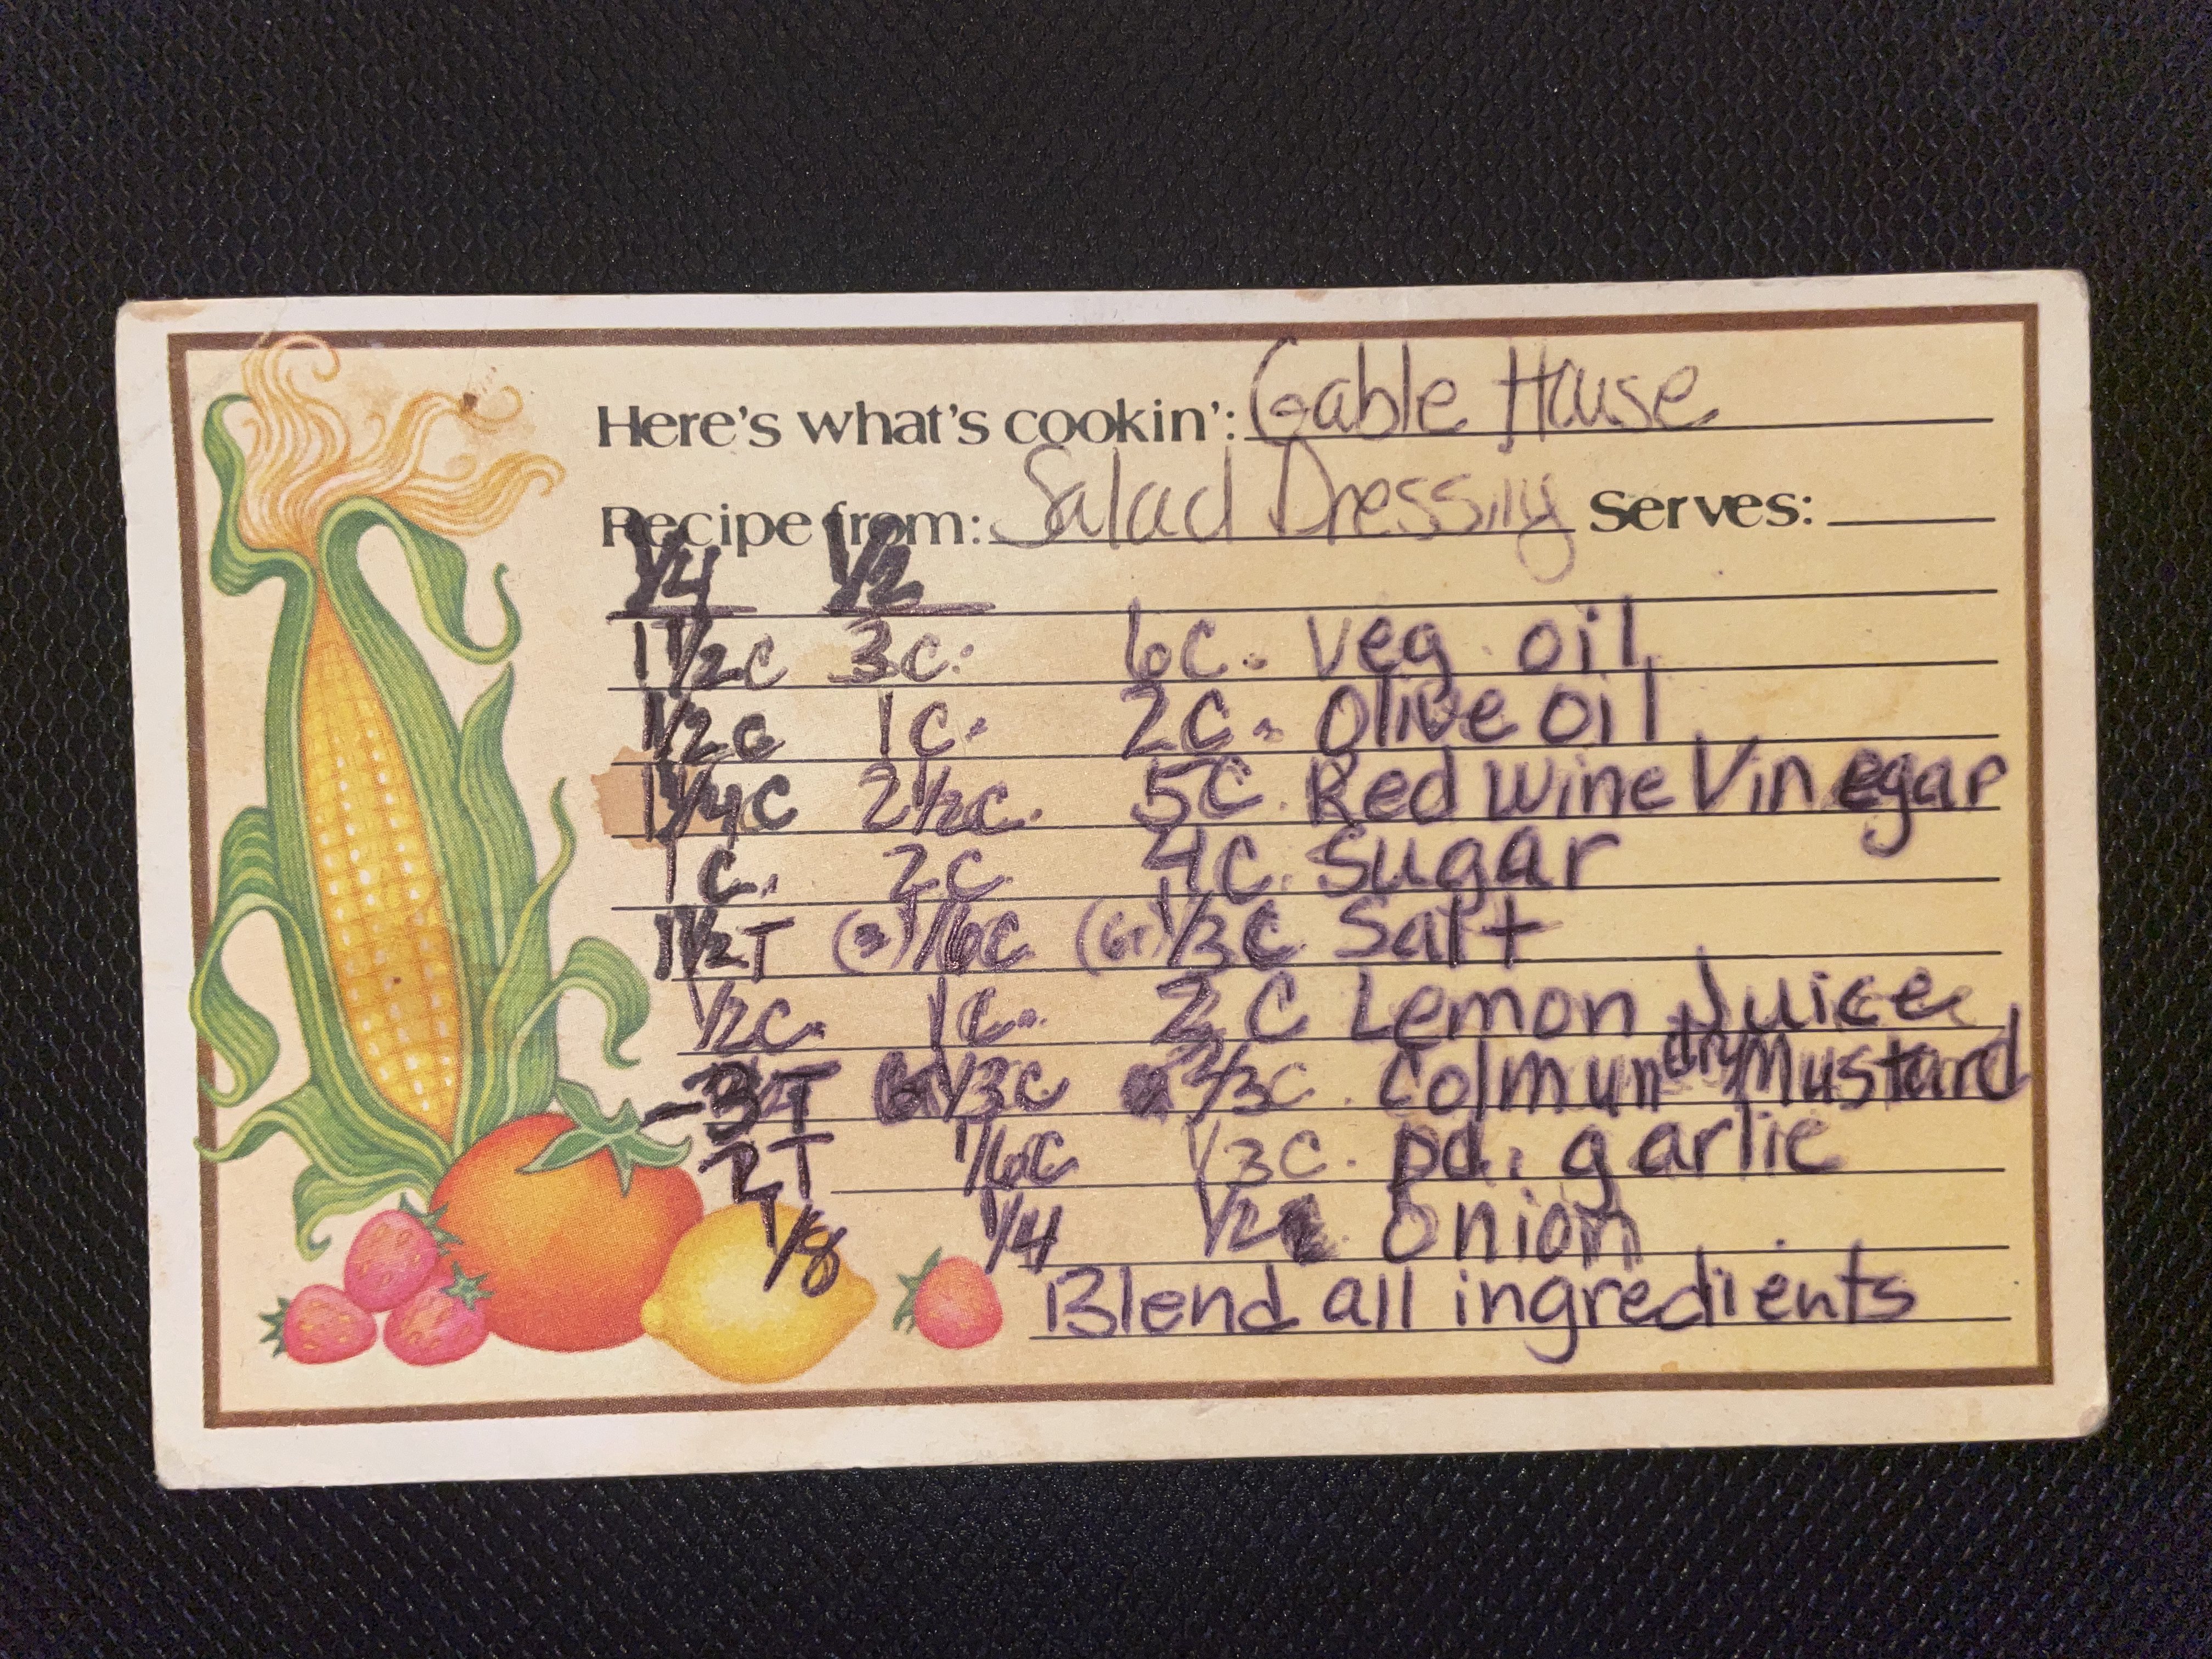 Here's what's cookin': Gable House
Recipe from: Salad Dressing Serves:
1/4 1/2
1 1/2 C 3 C. 6 C. Veg. oil
1/2 C 1 C. 2 C. Olive oil
1 1/4 C 2 1/2 C. 5 C. Red Wine Vinegar
1 C. 2 C. 4 C. Sugar
1 1/2 T (3) 1/6 C (6T) 1/3 C Salt
1/2 C. 1 C. 2 C Lemon Juice
-3T 1/3 C 2/3 C. Colmun dry Mustard
2T 1/6 C 1/3 C. pd. garlic
1/8 1/4 1/2 Onion
Blend all ingredients